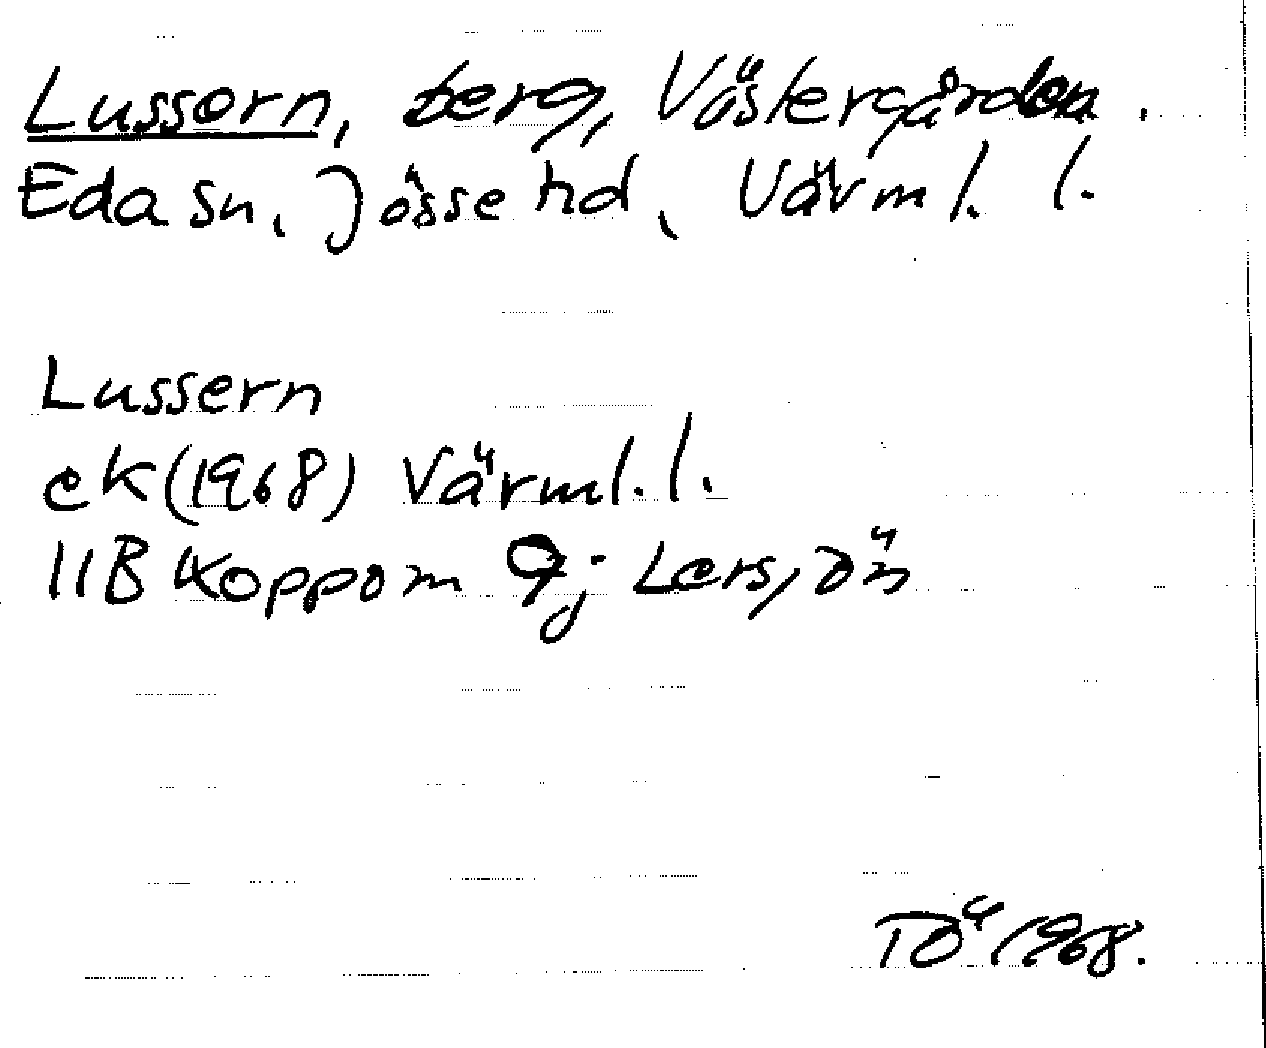 Lussern, berg, Västergården.
Eda sn, Jösse hd, Värml. l.
Lussern
ek (1968) Värml. l.
11B Koppom 9j Lersjön
TÖ 1968.